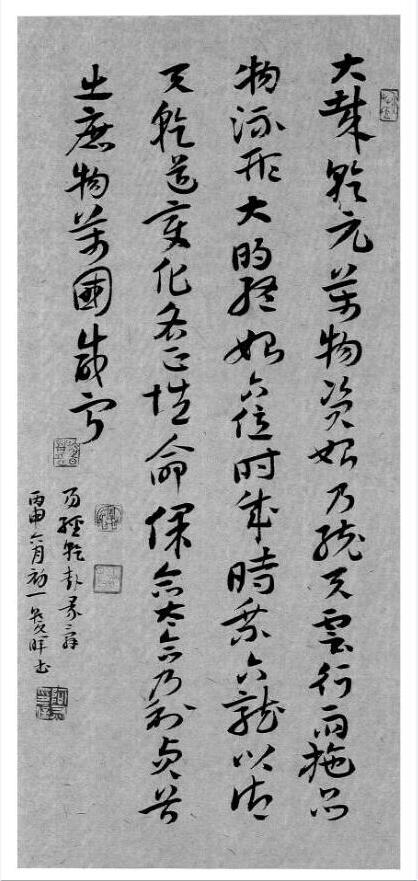 大哉乾元萬物資始乃統天雲行雨施品
物流形大明終始六位時成時乘六龍以御
天乾道變化各正性命保合太和乃利貞首
出庶物萬國咸寧
易經乾卦彖辭
丙申六月初一書